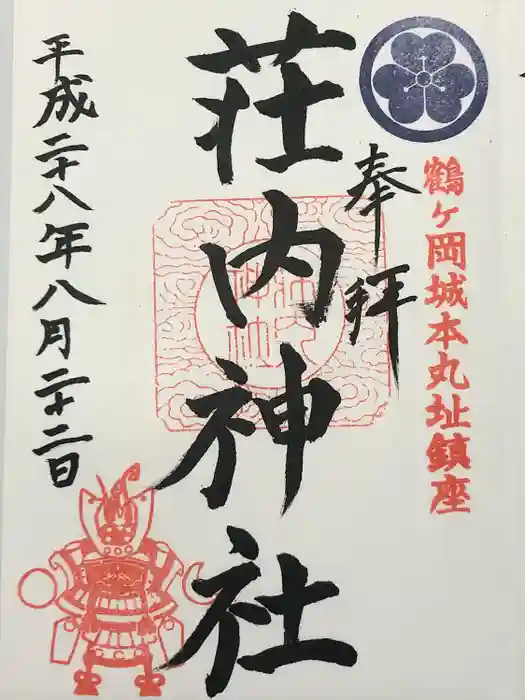 鶴ヶ岡城本丸址鎮座
奉拝
荘内神社
平成二十八年八月二十二日